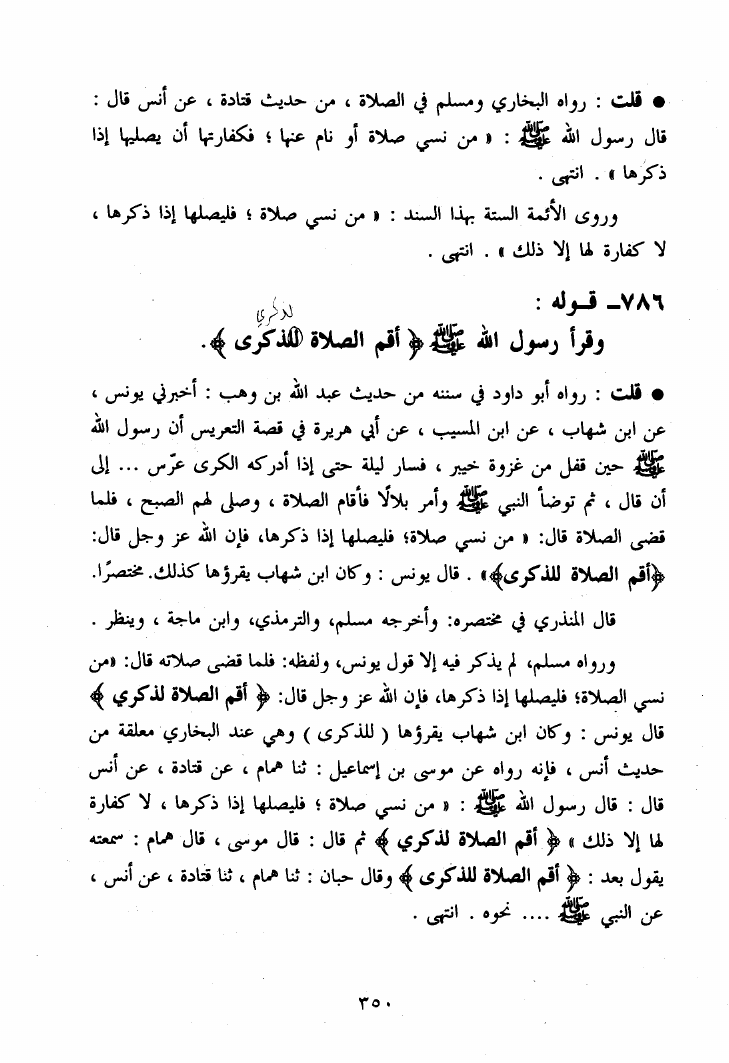 ● قلت : رواه البخاري ومسلم في الصلاة ، من حديث قتادة ، عن أنس قال :
قال رسول الله ﷺ : « من نسي صلاة أو نام عنها ؛ فكفارتها أن يصليها إذا
ذكرها » . انتهى .
وروى الأئمة الستة بهذا السند : « من نسي صلاة ؛ فليصلها إذا ذكرها ،
لا كفارة لها إلا ذلك » . انتهى .
٧٨٦ـ قـوله :
لذكري
وقرأ رسول الله ﷺ ﴿ أقم الصلاة للذكرى ﴾ .
● قلت : رواه أبو داود في سننه من حديث عبد الله بن وهب : أخبرني يونس ،
عن ابن شهاب ، عن ابن المسيب ، عن أبي هريرة في قصة التعريس أن رسول الله
ﷺ حين قفل من غزوة خيبر ، فسار ليلة حتى إذا أدركه الكرى عرّس ... إلى
أن قال ، ثم توضأ النبي ﷺ وأمر بلالًا فأقام الصلاة ، وصلى لهم الصبح ، فلما
قضى الصلاة قال: « من نسي صلاة؛ فليصلها إذا ذكرها، فإن الله عز وجل قال:
﴿أقم الصلاة للذكرى﴾» . قال يونس : وكان ابن شهاب يقرؤها كذلك. مختصرًا.
قال المنذري في مختصره: وأخرجه مسلم، والترمذي، وابن ماجة ، وينظر .
ورواه مسلم، لم يذكر فيه إلا قول يونس، ولفظه: فلما قضى صلاته قال: «من
نسي الصلاة؛ فليصلها إذا ذكرها، فإن الله عز وجل قال: ﴿ أقم الصلاة لذكري ﴾
قال يونس : وكان ابن شهاب يقرؤها ( للذكرى ) وهي عند البخاري معلقة من
حديث أنس ، فإنه رواه عن موسى بن إسماعيل : ثنا همام ، عن قتادة ، عن أنس
قال : قال رسول الله ﷺ : « من نسي صلاة ؛ فليصلها إذا ذكرها ، لا كفارة
لها إلا ذلك » ﴿ أقم الصلاة لذكري ﴾ ثم قال : قال موسى ، قال همام : سمعته
يقول بعد : ﴿ أقم الصلاة للذكرى ﴾ وقال حبان : ثنا همام ، ثنا قتادة ، عن أنس ،
عن النبي ﷺ .... نحوه . انتهى .
٣٥٠